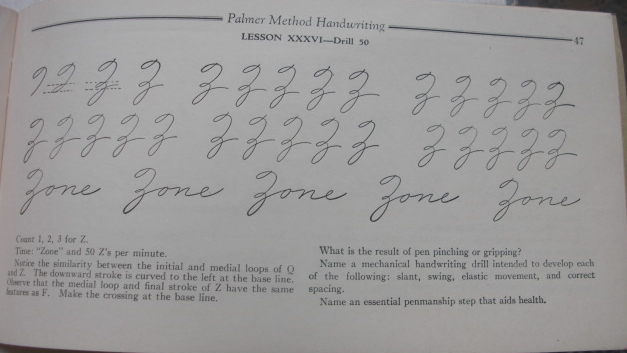 Palmer Method Handwriting
LESSON XXXVI—Drill 50
47
Z Z Z Z Z Z Z Z Z Z Z Z Z
Z Z Z Z Z Z Z Z Z Z Z Z Z Z Z
Zone Zone Zone Zone Zone
Count 1, 2, 3 for Z.
Time: "Zone" and 50 Z's per minute.
Notice the similarity between the initial and medial loops of Q
and Z. The downward stroke is curved to the left at the base line.
Observe that the medial loop and final stroke of Z have the same
features as F. Make the crossing at the base line.
What is the result of pen pinching or gripping?
Name a mechanical handwriting drill intended to develop each
of the following: slant, swing, elastic movement, and correct
spacing.
Name an essential penmanship step that aids health.